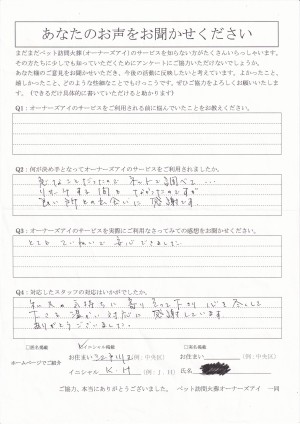 あなたのお声をお聞かせください
まだまだペット訪問火葬(オーナーズアイ)のサービスを知らない方がたくさんいらっしゃいます。
その方たちに少しでも知っていただくためにアンケートにご協力いただけないでしょうか。
あなた様のご意見をお聞かせいただき、今後の活動に反映したいと考えています。よかったこと、
嬉しかったこと、どのような些細なことでもけっこうです。ぜひご協力をよろしくお願いいたしま
す。(できるだけ具体的に書いていただけると助かります)
Q1：オーナーズアイのサービスをご利用される前に悩んでいたことをお教えください。
Q2：何が決め手となってオーナーズアイのサービスをご利用されましたか。
急なことだったので ネットで調べて…
良い所との出会いに感謝です。
Q3：オーナーズアイのサービスを実際にご利用なさってみての感想をお聞かせください。
とても ていねいで 安心できました。
Q4：対応したスタッフの対応はいかがでしたか。
私共の気持ちに寄り添って下さり 心を尽くして
下さる 温かい対応に 感謝しています
ありがとうございました。
□匿名掲載 イニシャル掲載 □実名掲載
ホームページでご紹介
お住まい (例：中央区) お住まい (例：中央区)
イニシャル K・H (例：J．H) 氏名
ご協力、本当にありがとうございました。 ペット訪問火葬オーナーズアイ 一同